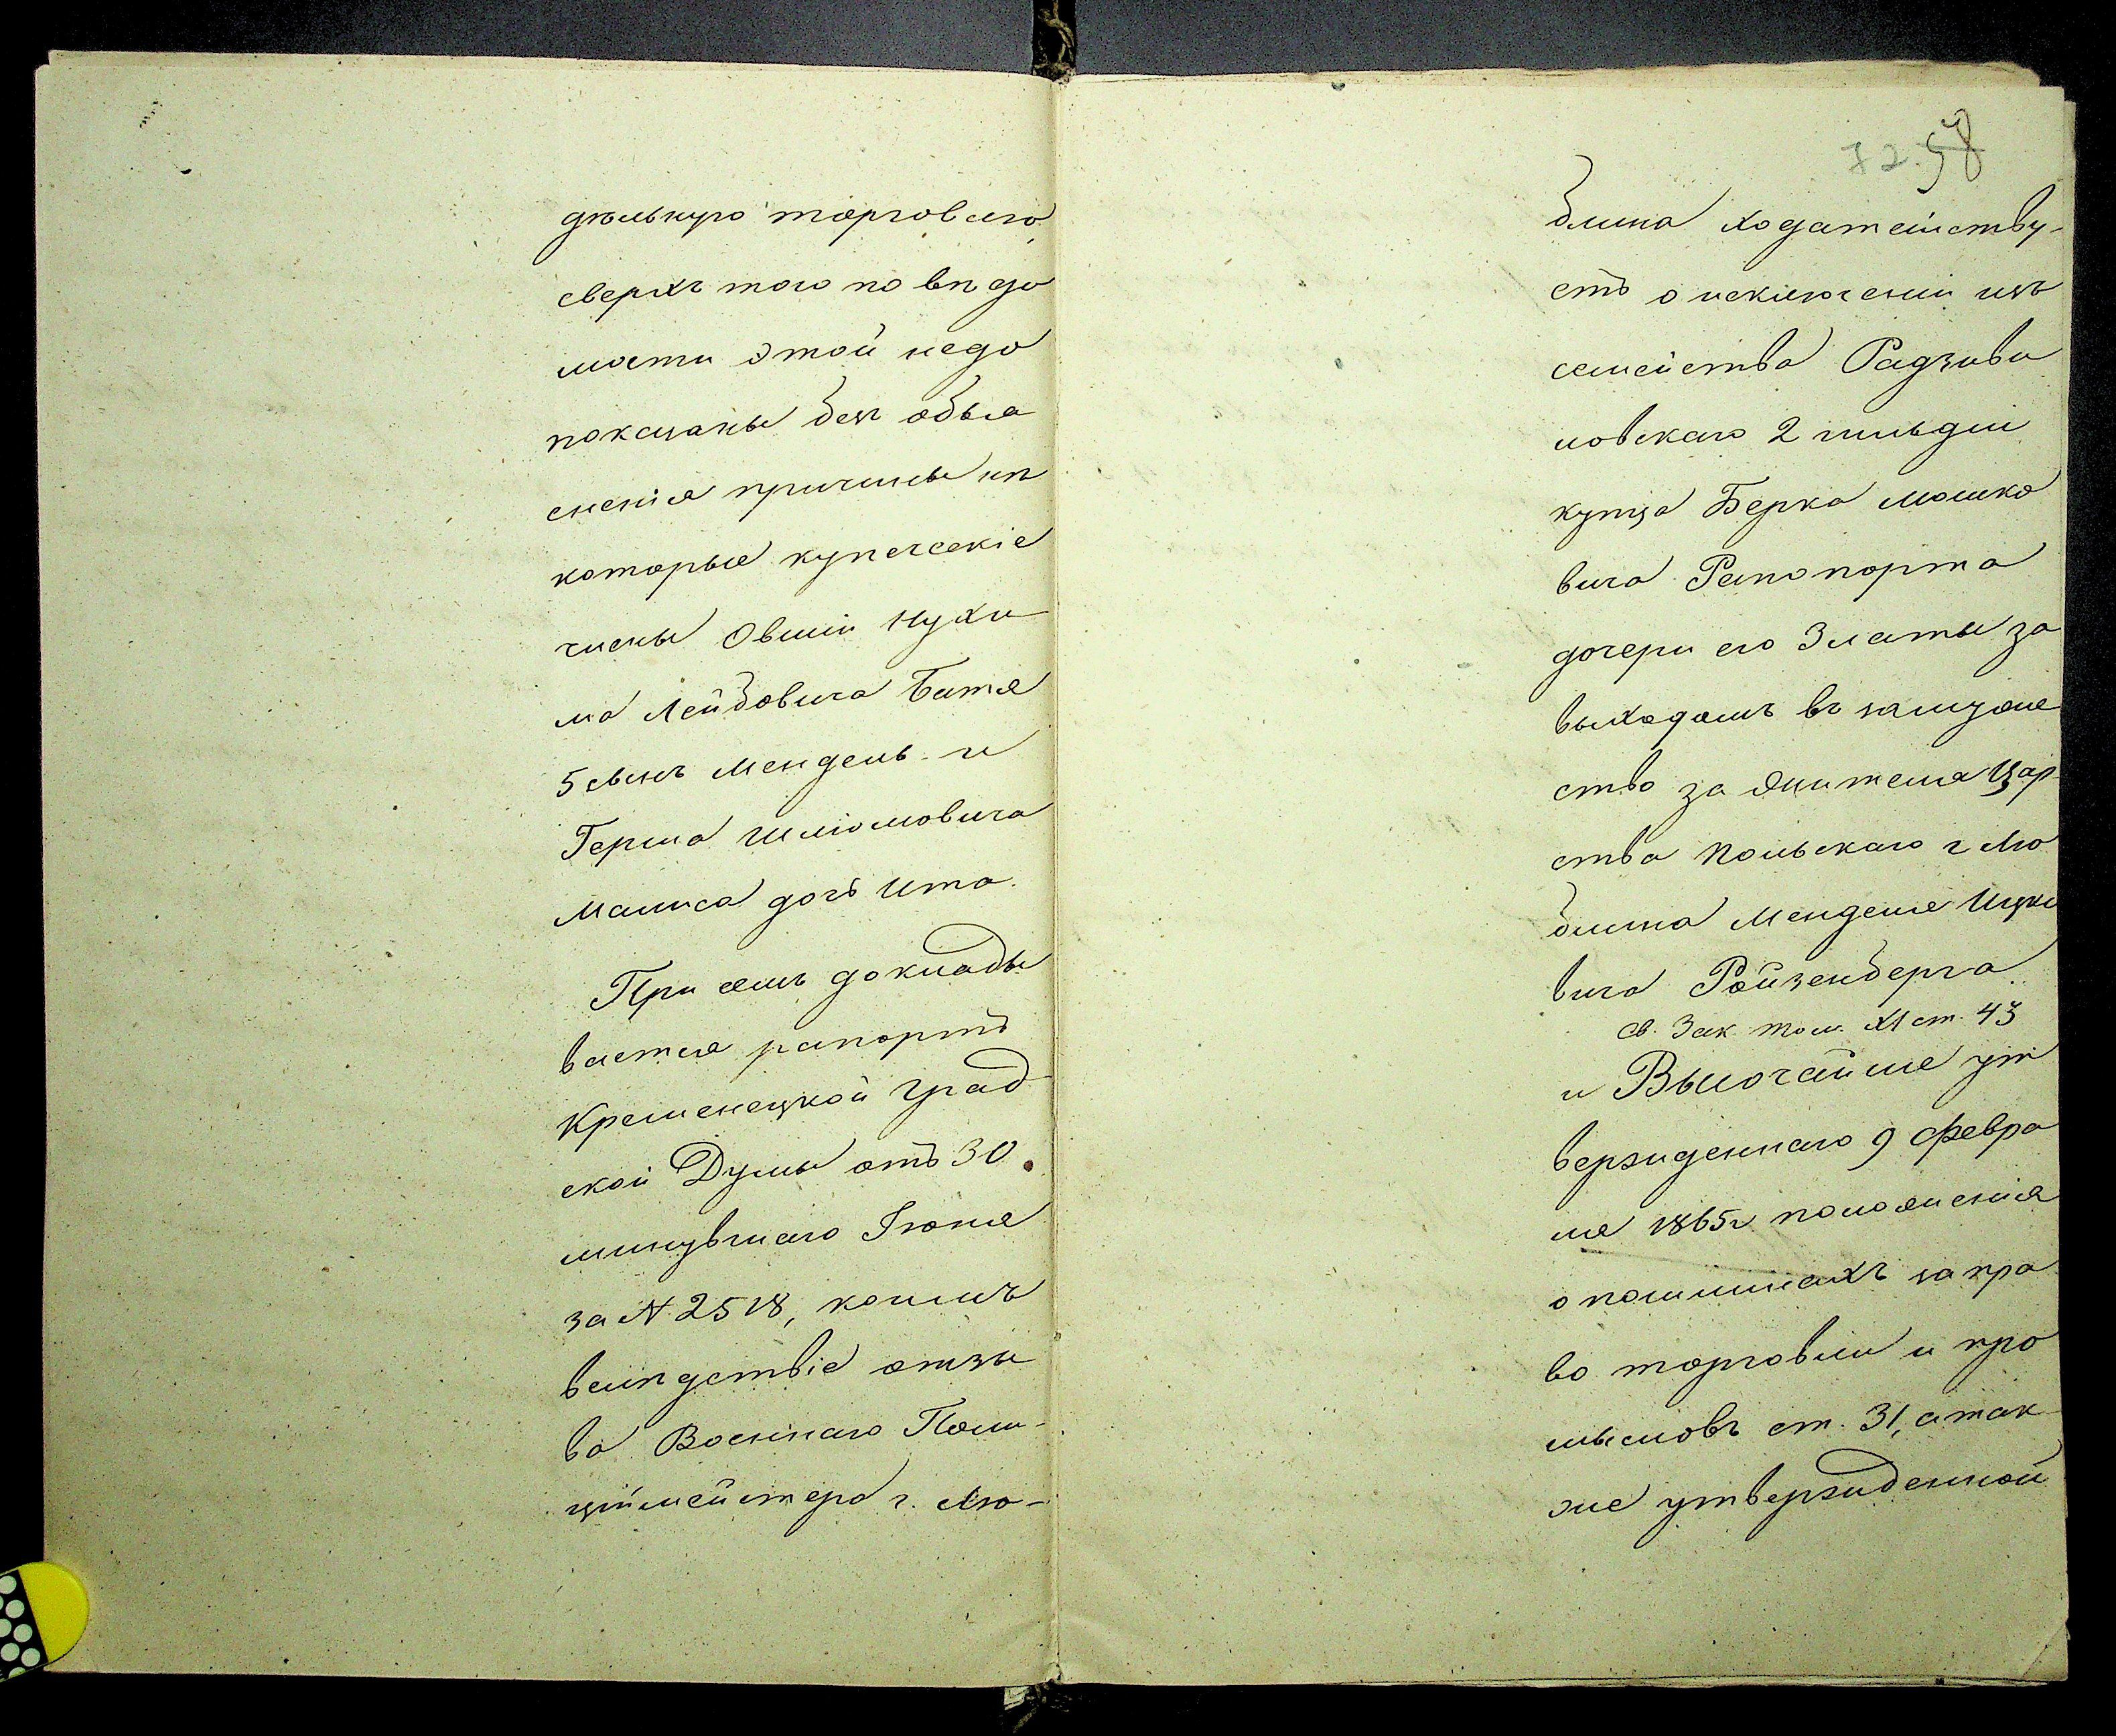 дѣльную торговлю
сверхъ того по вѣдо
мости этой недо
показаны безъ объя
сненія причины нѣ
которые купеческіе
члены Овшіи Нухи
ма Лейбовича Батя
5 сынъ Мендель и
Герша Шліомовича
Малиса дочь Ита.
При семъ доклады
вается рапортъ
Кременецкой Град
ской Думы отъ 30
минувшаго Іюня
за № 2518, коимъ
вслѣдствіе отзы
ва Военнаго Поли-
цiймейстера г. Лю-
72. 58
блина ходатайству-
етъ о исключеніи изъ
семейства Радзиви
ловскаго 2 гильдіи
купца Берка Мошко
вича Рапопорта
дочери его Златы за
выходомъ въ замуже
ство за жителя Цар
ства Польскаго г Лю
блина Менделя Ицко
вича Ройзенберга
Св. Зак. том. XI ст. 43
и Высочайше ут
вержденнаго 9 Февра
ля 1865 г положенія
о пошлинахъ за пра
во торговли и про
мысловъ ст. 31, а так
же утвержденной